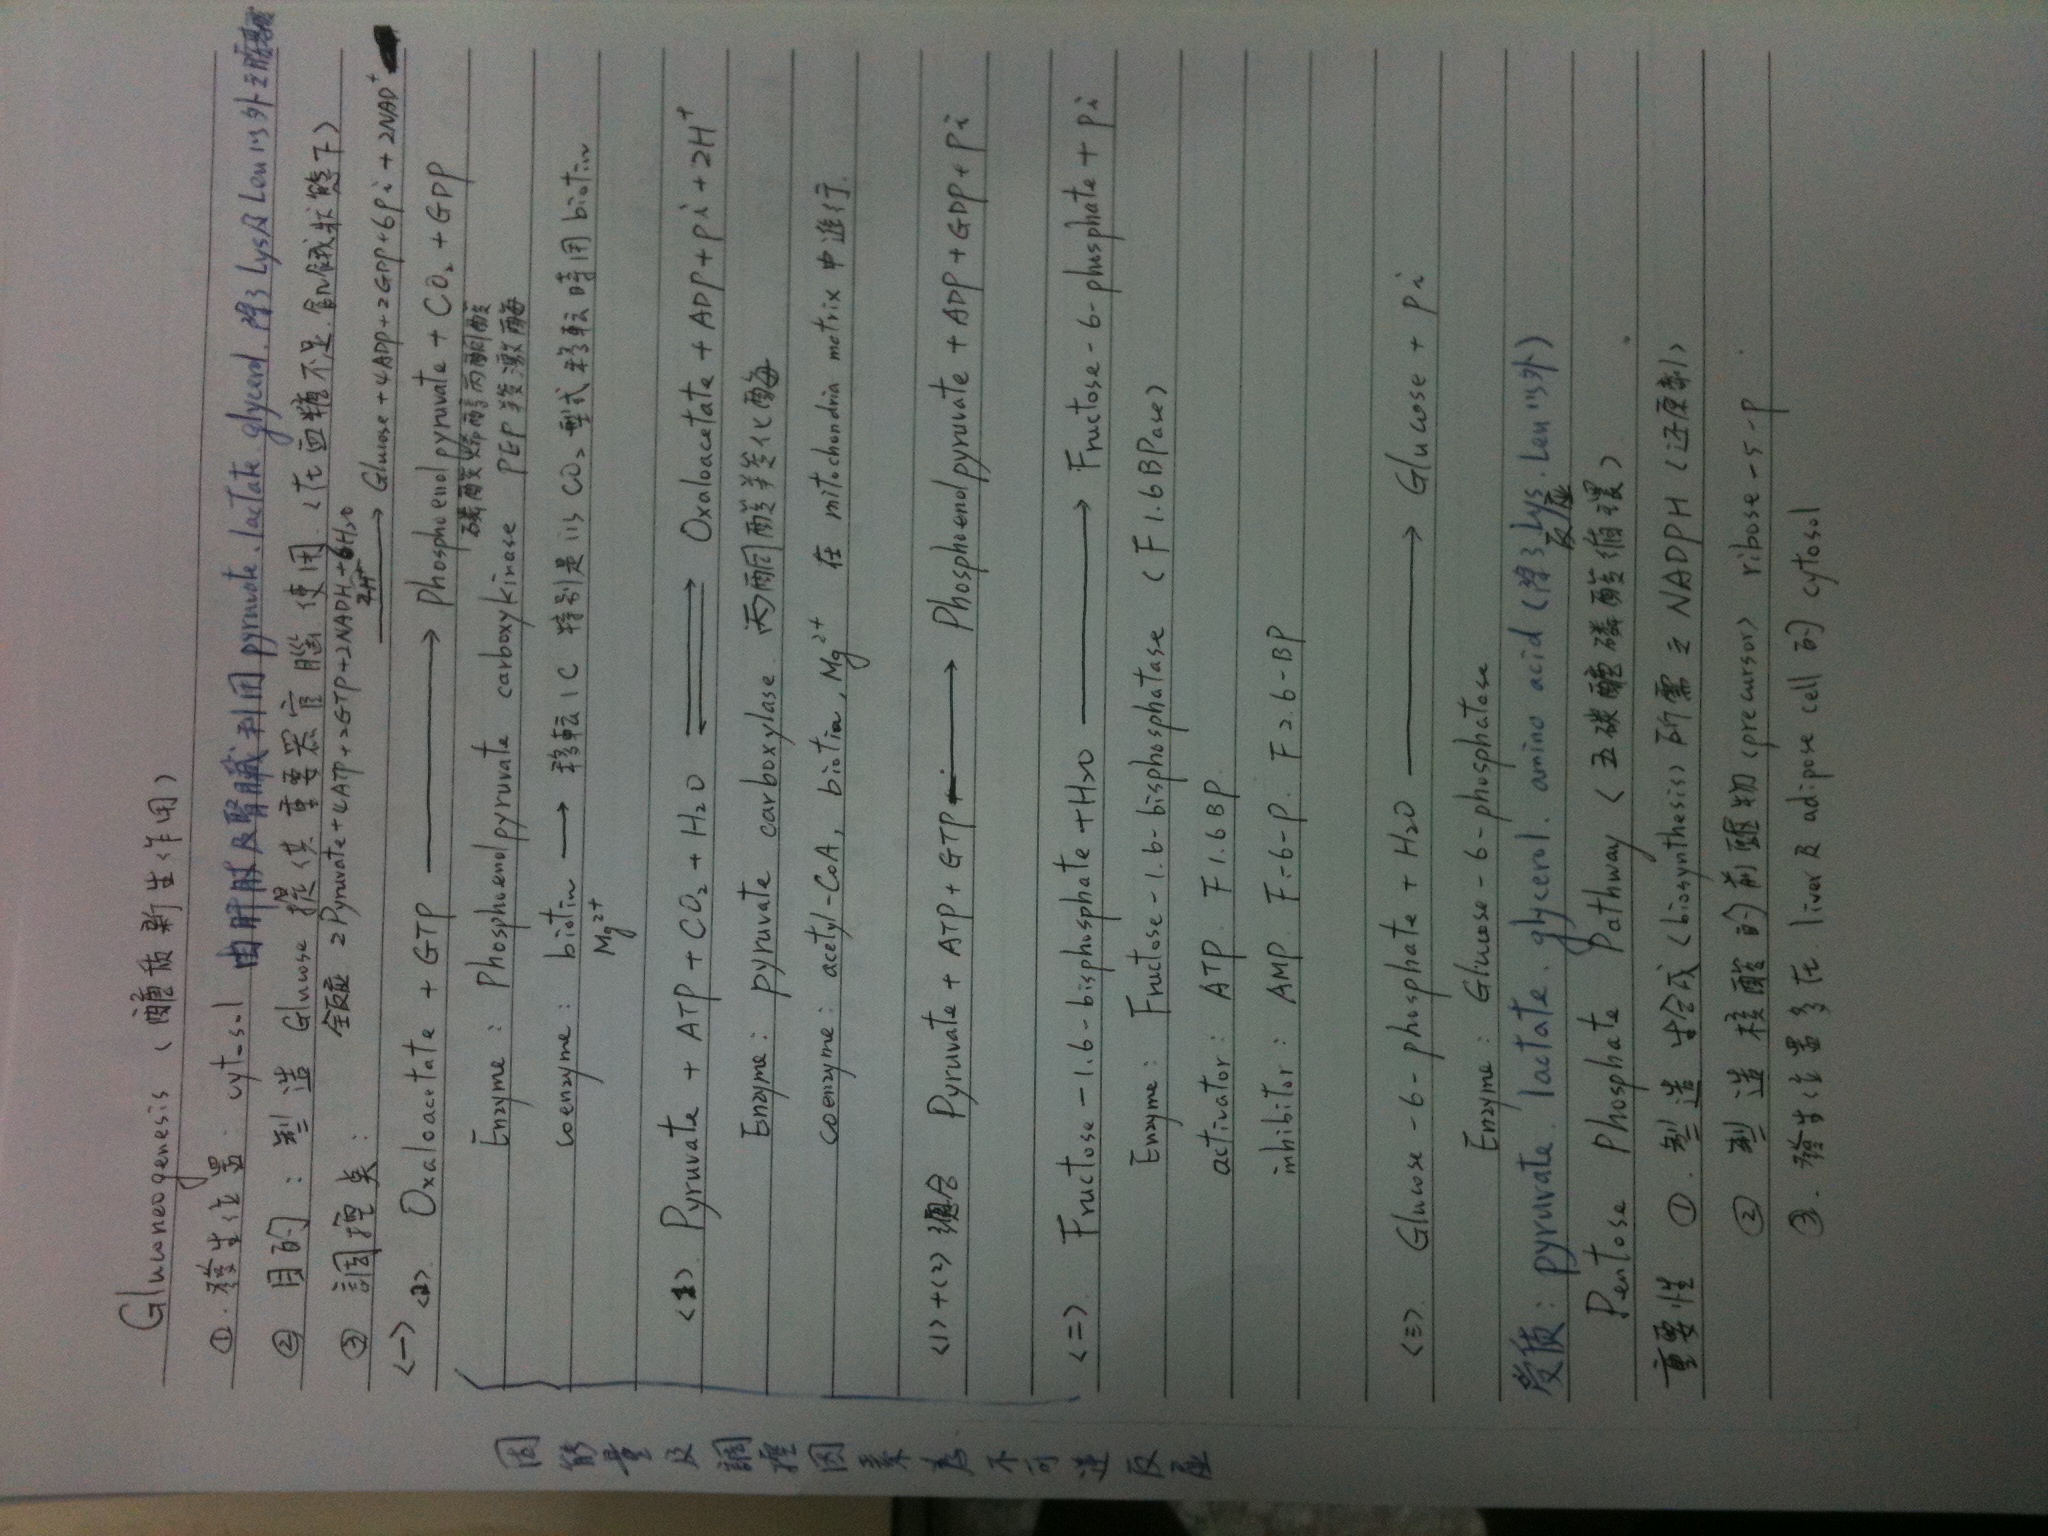 Gluconeogenesis (醣質新生作用)
①. 發生位置: cytosol 由肝臟及腎臟利用 pyruvate. lactate. glycerol. 除了 Lys及 Leu 以外之胺基酸
② 目的: 製造 Glucose 提供重要器官腦使用. (在血糖不足. 飢餓狀態下)
③ 調控点:
全反應 2 Pyruvate + 4ATP + 2GTP + 2NADH + 6H2O → Glucose + 4ADP + 2GDP + 6Pi + 2NAD⁺
2H⁺
<一> <2>. Oxaloacetate + GTP ⟶ Phosphoenolpyruvate + CO₂ + GDP
磷酸烯醇丙酮酸
Enzyme: Phosphoenolpyruvate carboxykinase PEP 羧激酶
coenzyme: biotin → 移転 1C 特別是以 CO₂ 型式移転時用 biotin
Mg²⁺
<1>. Pyruvate + ATP + CO₂ + H₂O ⇌ Oxaloacetate + ADP + Pi + 2H⁺
Enzyme: pyruvate carboxylase. 丙酮酸羧化酶
coenzyme: acetyl-CoA, biotin, Mg²⁺ 在 mitochondria matrix 中進行.
<1>+<2> 總合 Pyruvate + ATP + GTP ⟶ Phosphoenolpyruvate + ADP + GDP + Pi
<二>. Fructose-1.6-bisphosphate + H2O ⟶ Fructose-6-phosphate + Pi
Enzyme: Fructose-1.6-bisphosphatase (F1.6BPase)
activator: ATP. F1.6BP.
inhibitor: AMP. F-6-P. F2.6-BP
<三>. Glucose-6-phosphate + H2O ⟶ Glucose + Pi
Enzyme: Glucose-6-phosphatase
受質: pyruvate. lactate. glycerol. amino acid (除了 Lys. Leu 以外)
反應
Pentose Phosphate Pathway (五碳醣磷酸循環).
重要性 ①. 製造生合成 (biosynthesis) 所需之 NADPH (还原劑)
② 製造核酸的前驅物 (precursor) ribose-5-P.
③. 發生位置多在. liver 及 adipose cell 的 cytosol
因能量及調控因素為不可逆反應